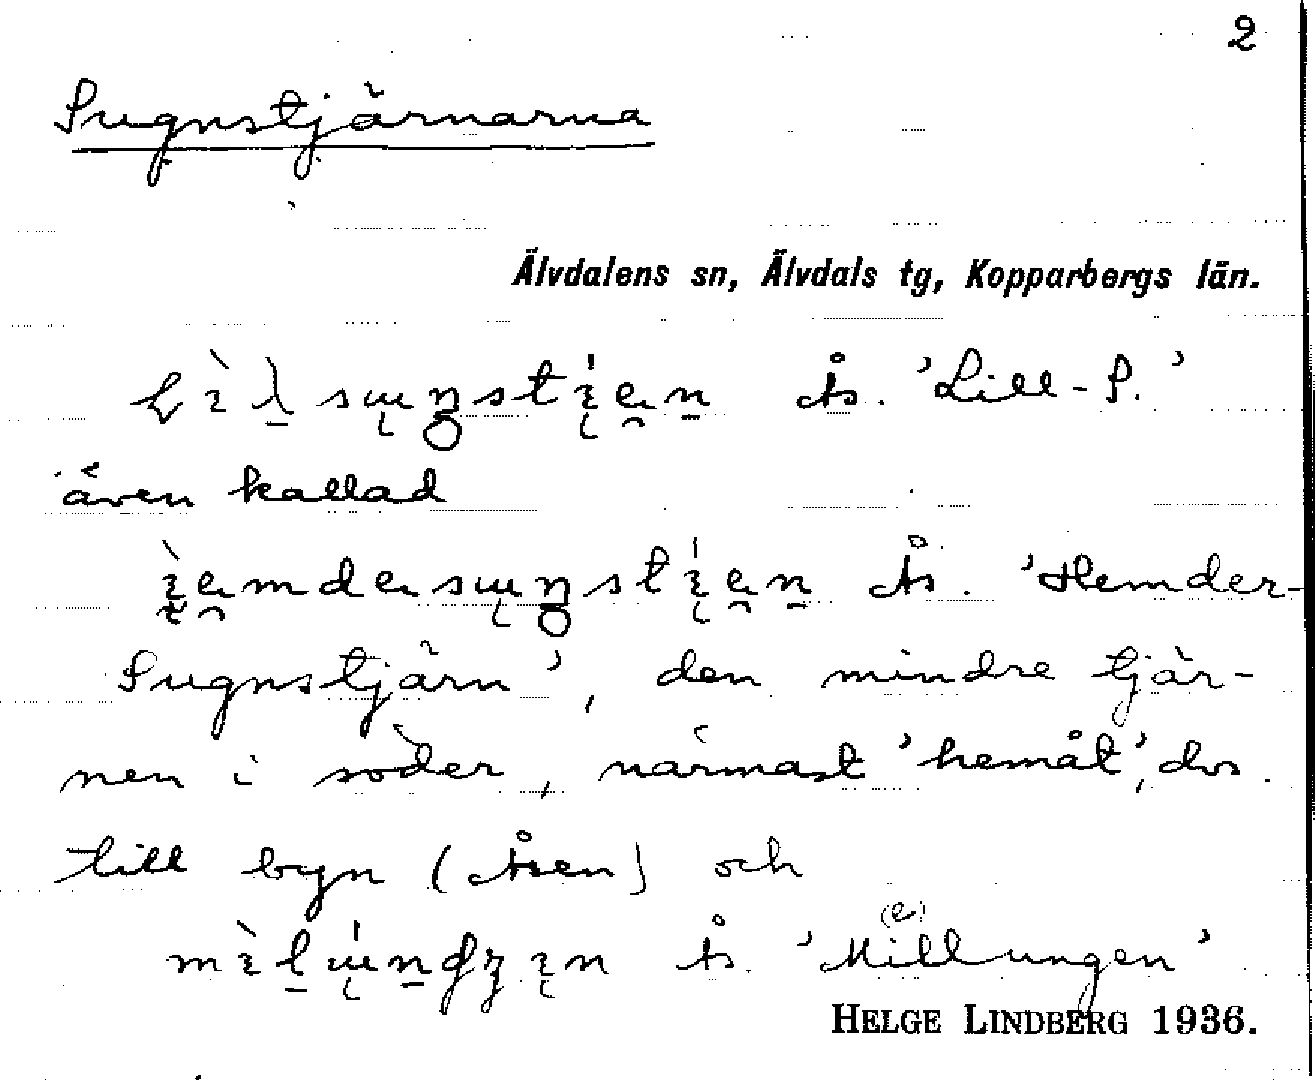 2
Sugnstjärnarna
Älvdalens sn, Älvdals tg, Kopparbergs län.
Ås. 'Lill-S.'
även kallad
Ås. 'Hemder-
Sugnstjärn', den mindre tjär-
nen i söder, närmast 'hemåt', dvs.
till byn (Åsen) och
(e)
Ås. 'Millungen'
HELGE LINDBERG 1936.